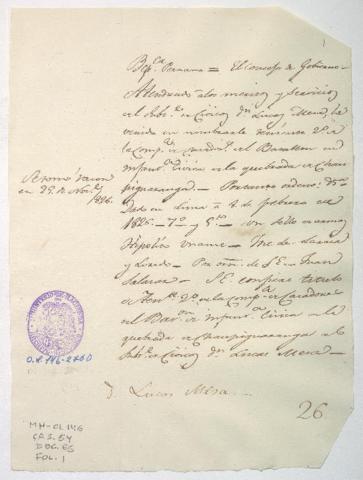 Repca. Peruana = El consejo de Gobierno =
Atendiendo a los meritos y servicios
el Subte. de Civicos dn. Lucas Mesa, he
venido en nombrarle teniente 2o. de
la Compa. de el Batallon de
Infanta. Civica de la quebrada de Chau
piguaranga. Por tanto ordeno
Dado en Lima à 7 de febrero de
1826. 7o. y 5o. Un sello de armas
Hipolito Unanue = Jose de Larrea
y Loredo = Por orn. de S.E. = Juan
Salazar = S.E. confiere titulo
de Tente. 2o. de la Compa. de Cazadores
el Baton. de infanta. Civica de la
quebrada de Chaupiguaranga al
Subte. de Civicos dn. Lucas Mesa =
Se tomó razon
en 29. de Nove.
1826.
O.L. 146-2760
D. Lucas Mesa.
26
MH-OL 146
CAJ. 54
DOC. 65
FOL. 1